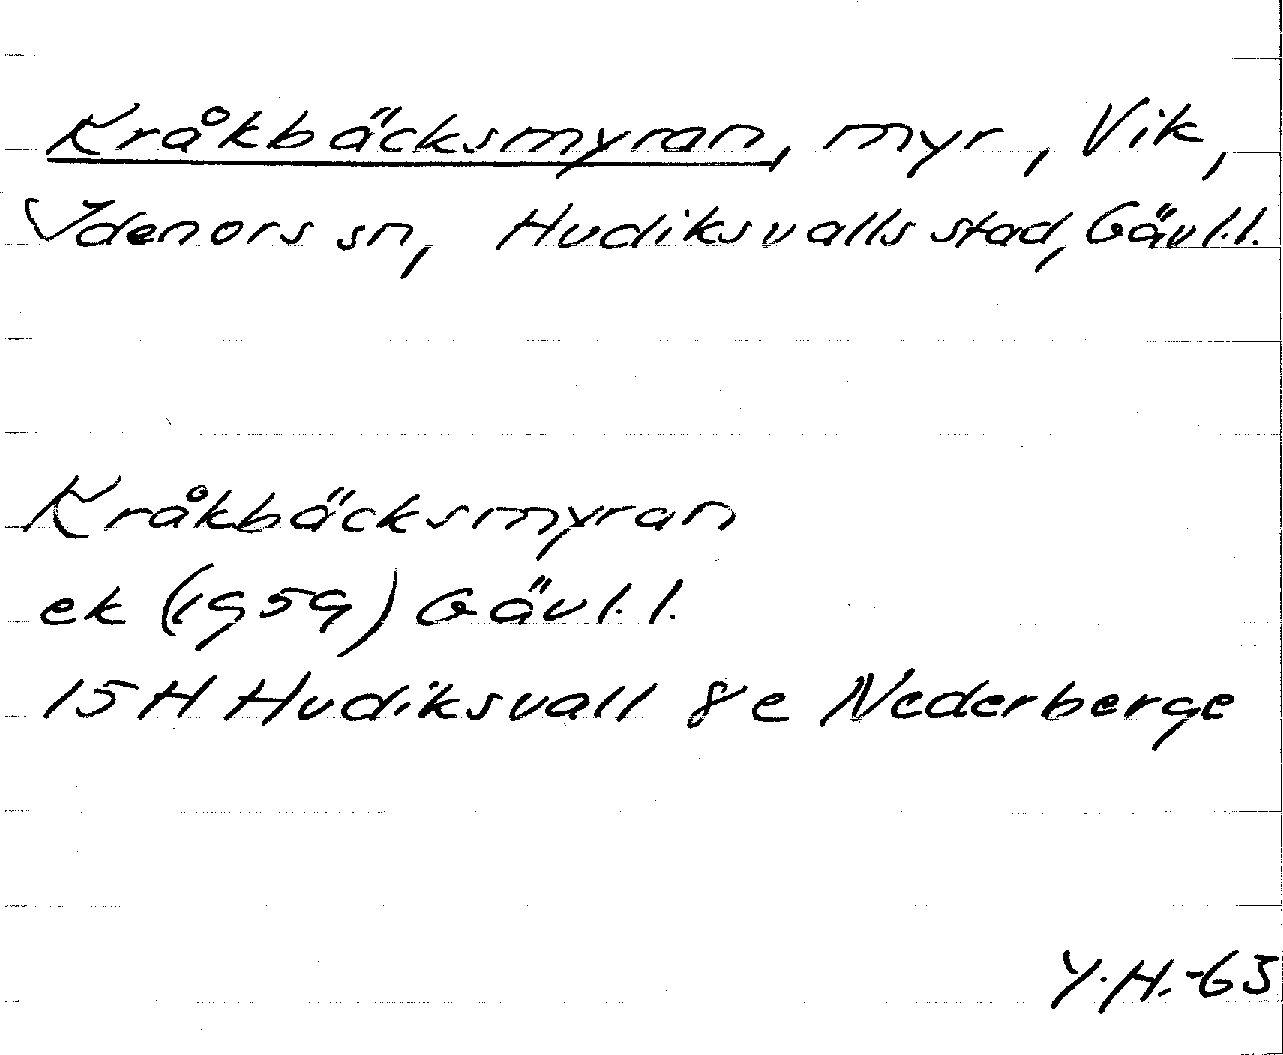 Kråkbäcksmyran, myr, Vik,
Idenors sn, Hudiksvalls stad, Gävl.l.
Kråkbäcksmyran
ek (1959) Gävl.l.
15H Hudiksvall 8e Nederberge
Y.H.-65